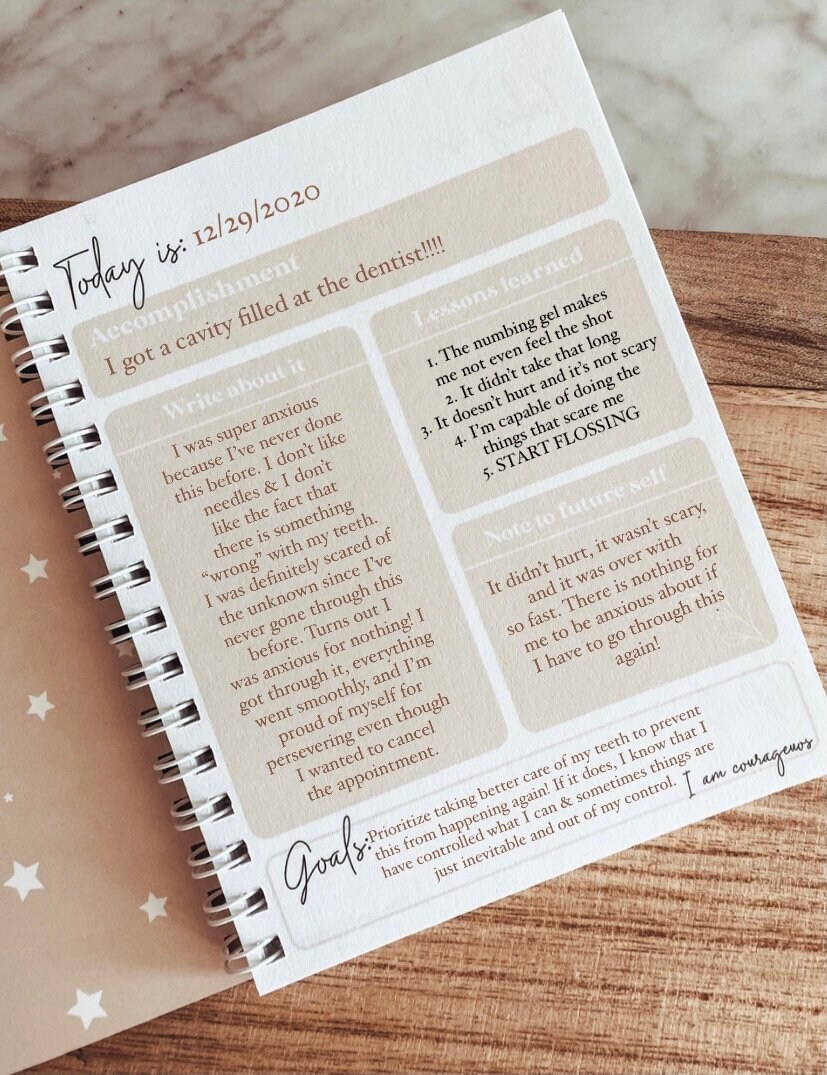 Today is: 12/29/2020
Accomplishment
I got a cavity filled at the dentist!!!!
Write about it
I was super anxious
because I've never done
this before. I don't like
needles & I don't
like the fact that
there is something
"wrong" with my teeth.
I was definitely scared of
the unknown since I've
never gone through this
before. Turns out I
was anxious for nothing! I
got through it, everything
went smoothly, and I'm
proud of myself for
persevering even though
I wanted to cancel
the appointment.
Lessons learned
1. The numbing gel makes
me not even feel the shot
2. It didn't take that long
3. It doesn't hurt and it's not scary
4. I'm capable of doing the
things that scare me
5. START FLOSSING
Note to future self
It didn't hurt, it wasn't scary,
and it was over with
so fast. There is nothing for
me to be anxious about if
I have to go through this
again!
Goals:
Prioritize taking better care of my teeth to prevent
this from happening again! If it does, I know that I
have controlled what I can & sometimes things are
just inevitable and out of my control.
I am courageuos